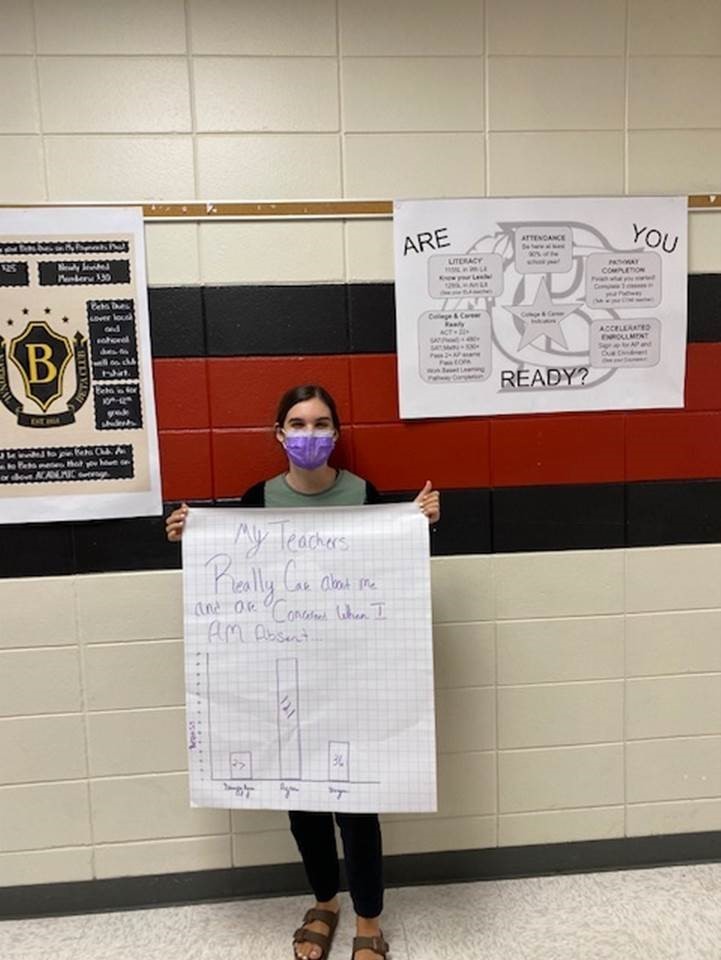 your Beta Dues on My Payments Plus!
$25
Newly Invited
Members: $30
Beta Dues
cover local
and
national
dues as
well as club
t-shirt.
B
BETA CLUB
Beta is for
10th-12th
grade
students.
be invited to join Beta Club. An
to Beta means that you have an
or above ACADEMIC average.
ARE
YOU
READY?
ATTENDANCE
Be here at least
90% of the
school year!
LITERACY
Know your Lexile!
PATHWAY
COMPLETION
Finish what you started!
Complete 3 classes in
your Pathway
College & Career
Indicators
College & Career
Ready
ACT = 22+
SAT(Read) = 480+
SAT(Math) = 530+
Pass 2+ AP exams
Pass EOPA
Work Based Learning
Pathway Completion
ACCELERATED
ENROLLMENT
Sign up for AP and
Dual Enrollment
My Teachers
Really Care about me
and are Concerned When I
AM Absent...
27
36
Agree